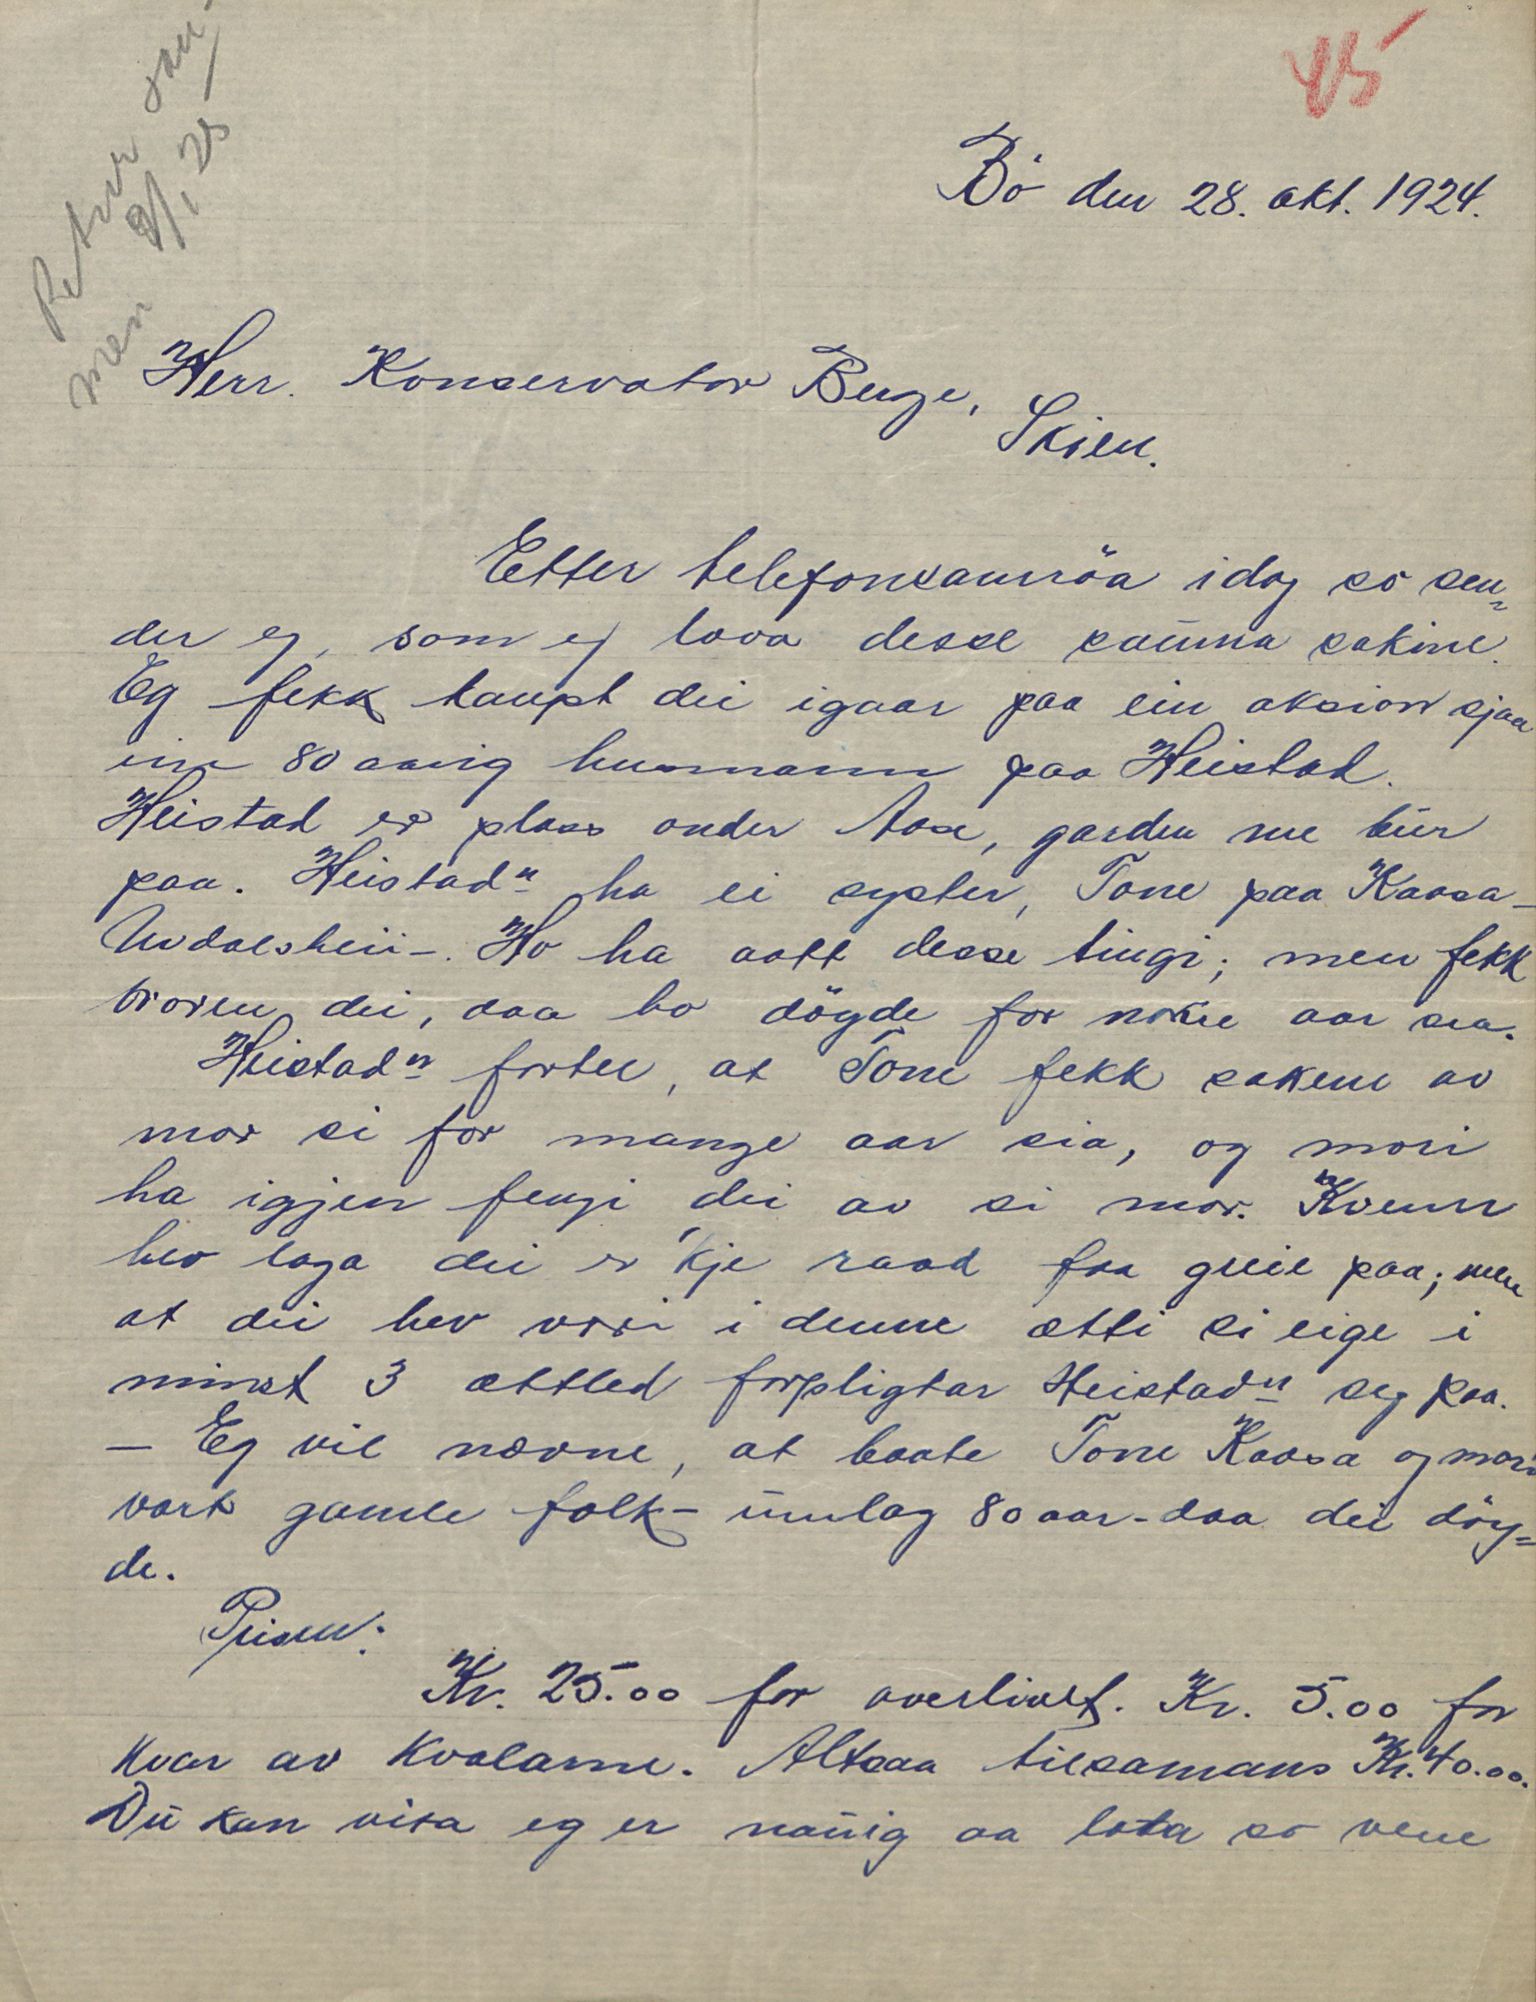 Retur sam-
men 9/1 25
45
Bö den 28. okt. 1924.
Herr. Konservator Berge,
Skien.
Etter telefonsamröa idag so sen-
der eg, som eg lova desse sauma sakine.
Eg fekk kaupt dei igaar paa ein aksion sjaa
ein 80 aarig husmann paa Heistad.
Heistad er plass under Aase, garden me bur
paa. Heistadn ha ei syster, Tone paa Kaasa-
Uvdalsheii-. Ho ha aatt desse tingi; men fekk
broren dei, daa ho döyde for nokre aar sea.
Heistadn fortel, at Tone fekk sakene av
mor si for mange aar sia, og mori
ha igjen fengi dei av si mor. Kvenn
hev laga dei er 'kje raad faa greie paa; men
at dei hev vori i denne ætti si eige i
minst 3 ættled forpligtar Heistadn seg paa.
- Eg vil nævne, at baate Tone Kaasa og mori
vart gamle folk - umlag 80 aar - daa dei döy-
de.
Prisen:
Kr. 25.00 for overlivet. Kr. 5.00 for
kvar av kvalarne. Altsaa tilsamans Kr. 40.00.
Du kan vita eg er nauig aa lata so vene